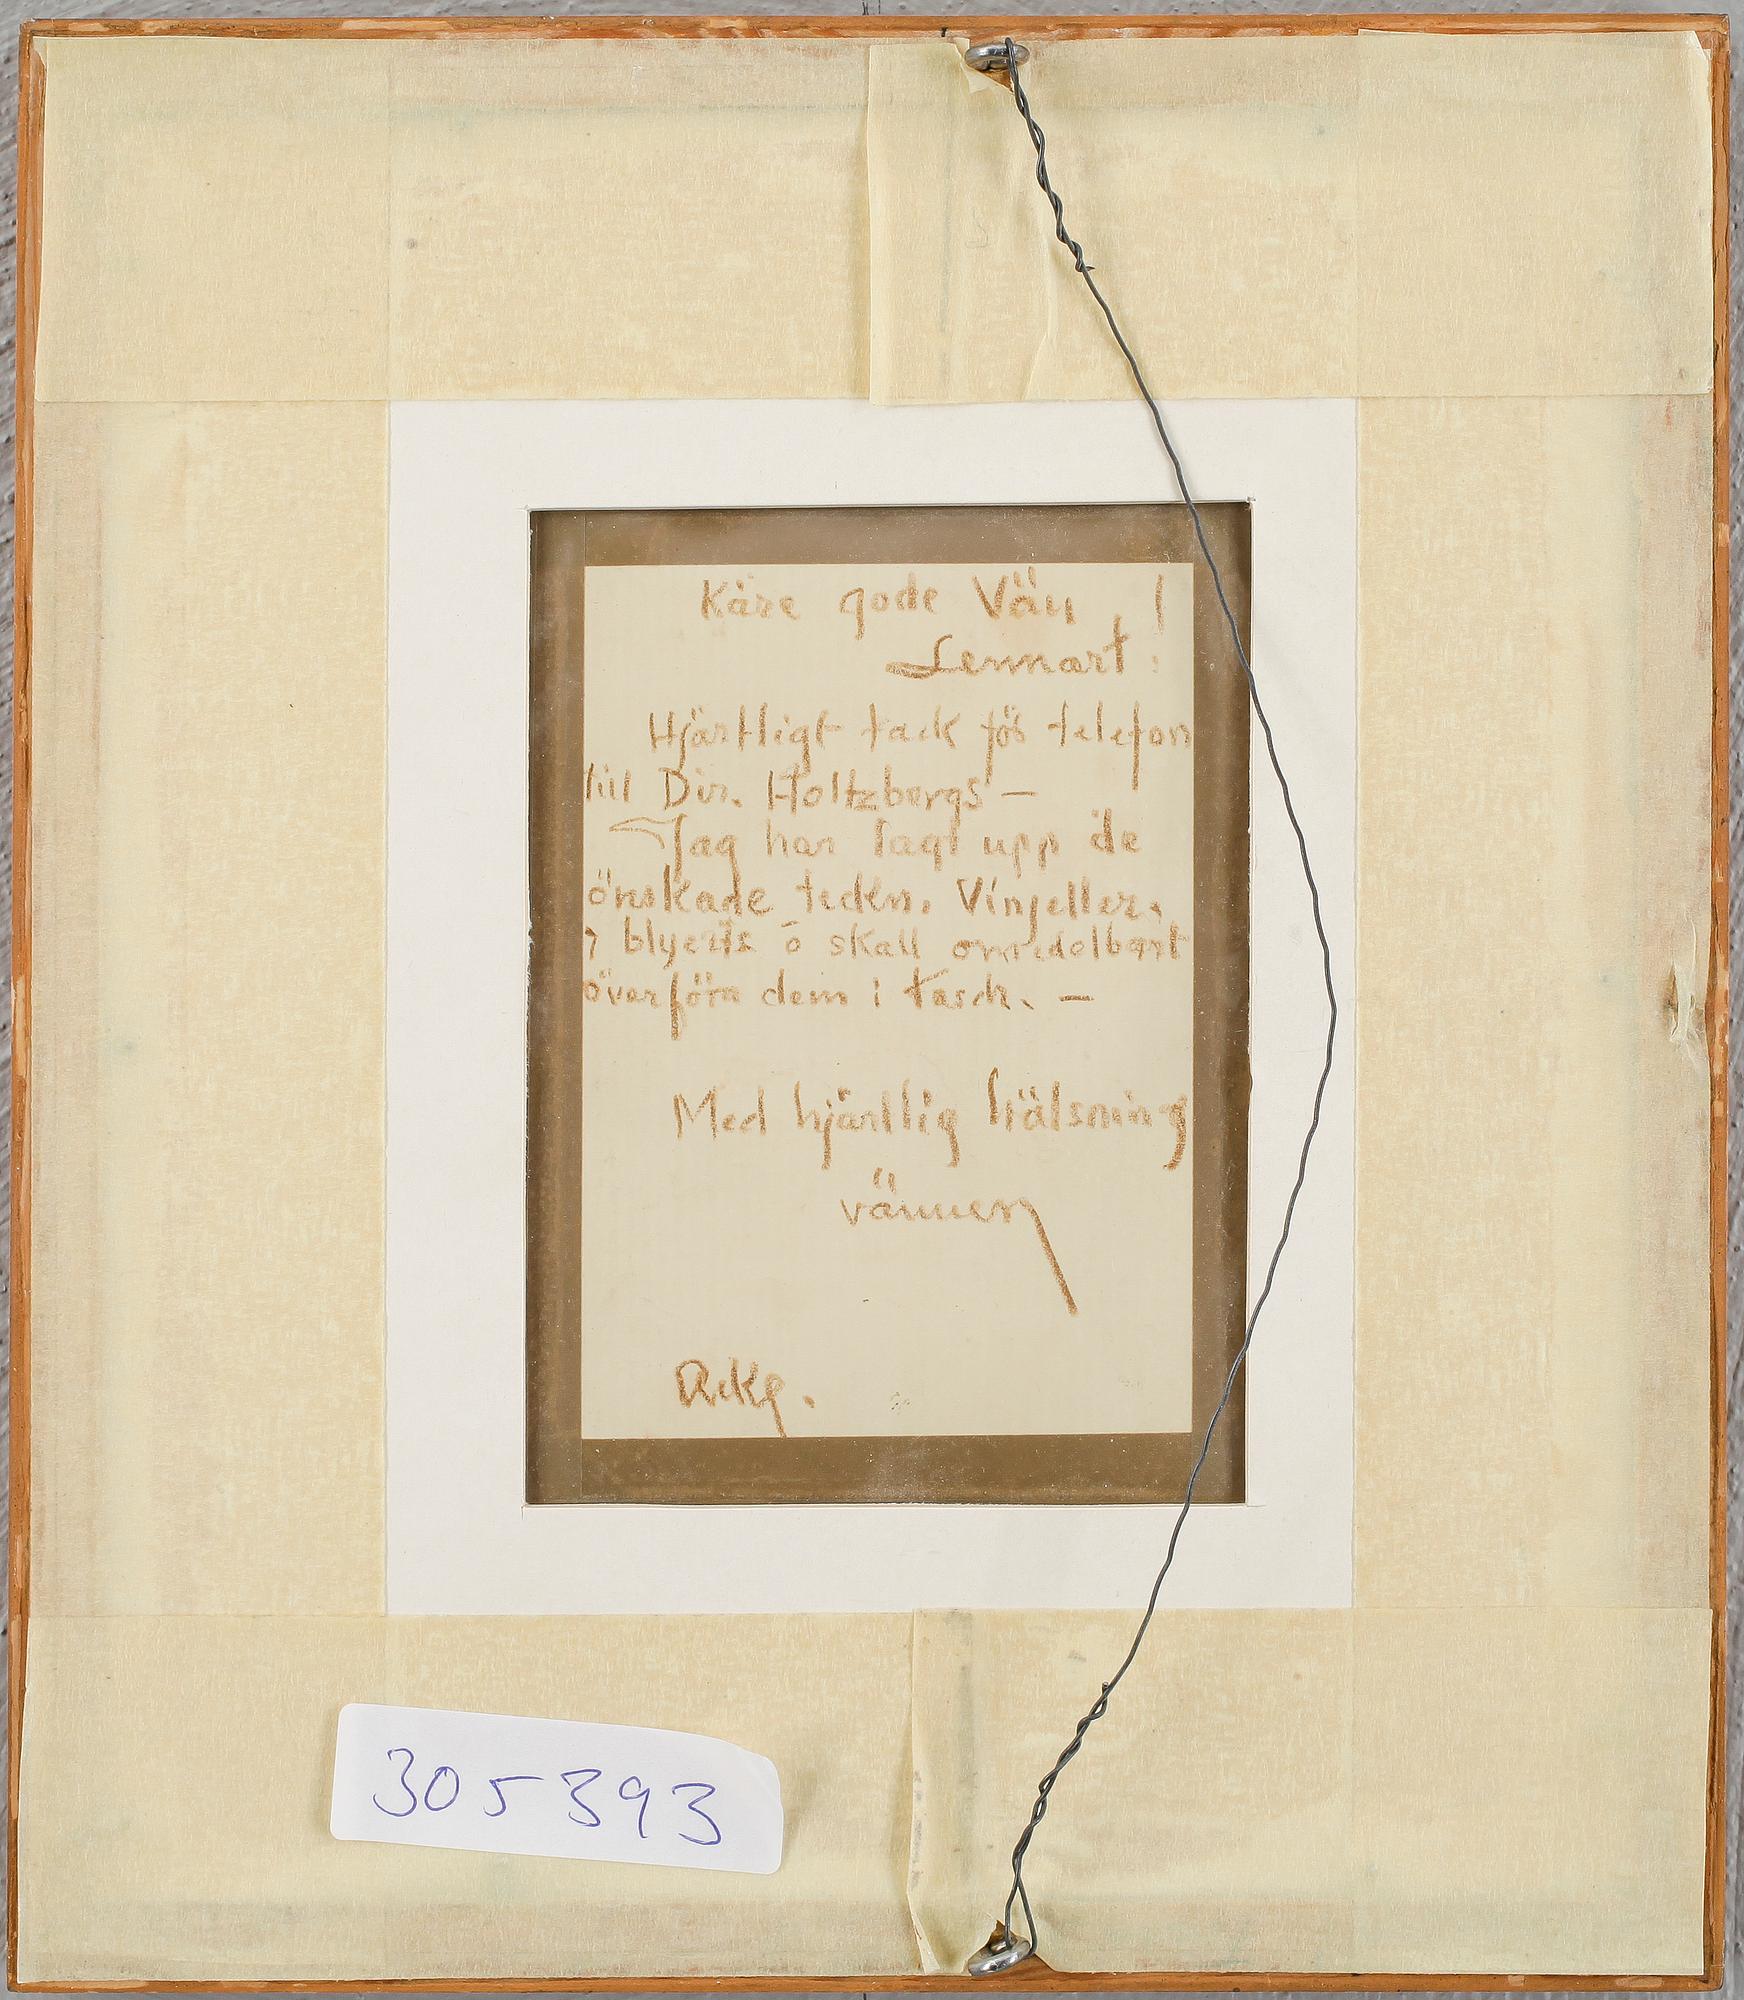 Käre gode Vän !
Lennart!
Hjärtligt tack för telefon
till Dir. Holtzbergs —
Jag har lagt upp de
önskade teckn. Vinjetter.
i blyerts o skall omedelbart
överföra dem i tusch. —
Med hjärtlig hälsning
vännen
305393